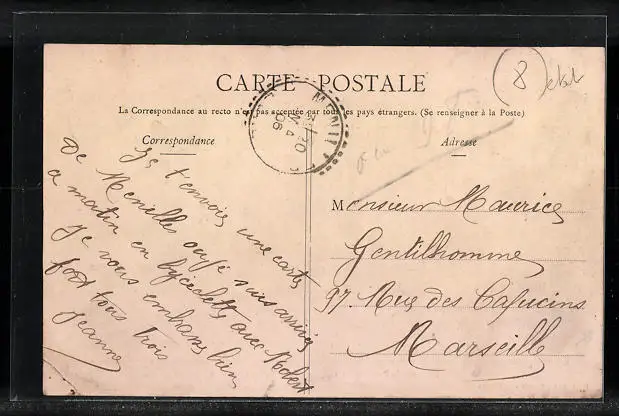 8
CARTE POSTALE
La Correspondance au recto n'est pas acceptée par tous les pays étrangers. (Se renseigner à la Poste)
Correspondance
Adresse
20
4
06
Je t'envoie une carte
de Menilles ou je suis arrivée
ce matin en bycaclette avec Robert
Je vous embrasse bien
fort tous trois
Jeanne
Monsieur Maurice
Gentilhomme
97 Rue des Capucins
Marseille